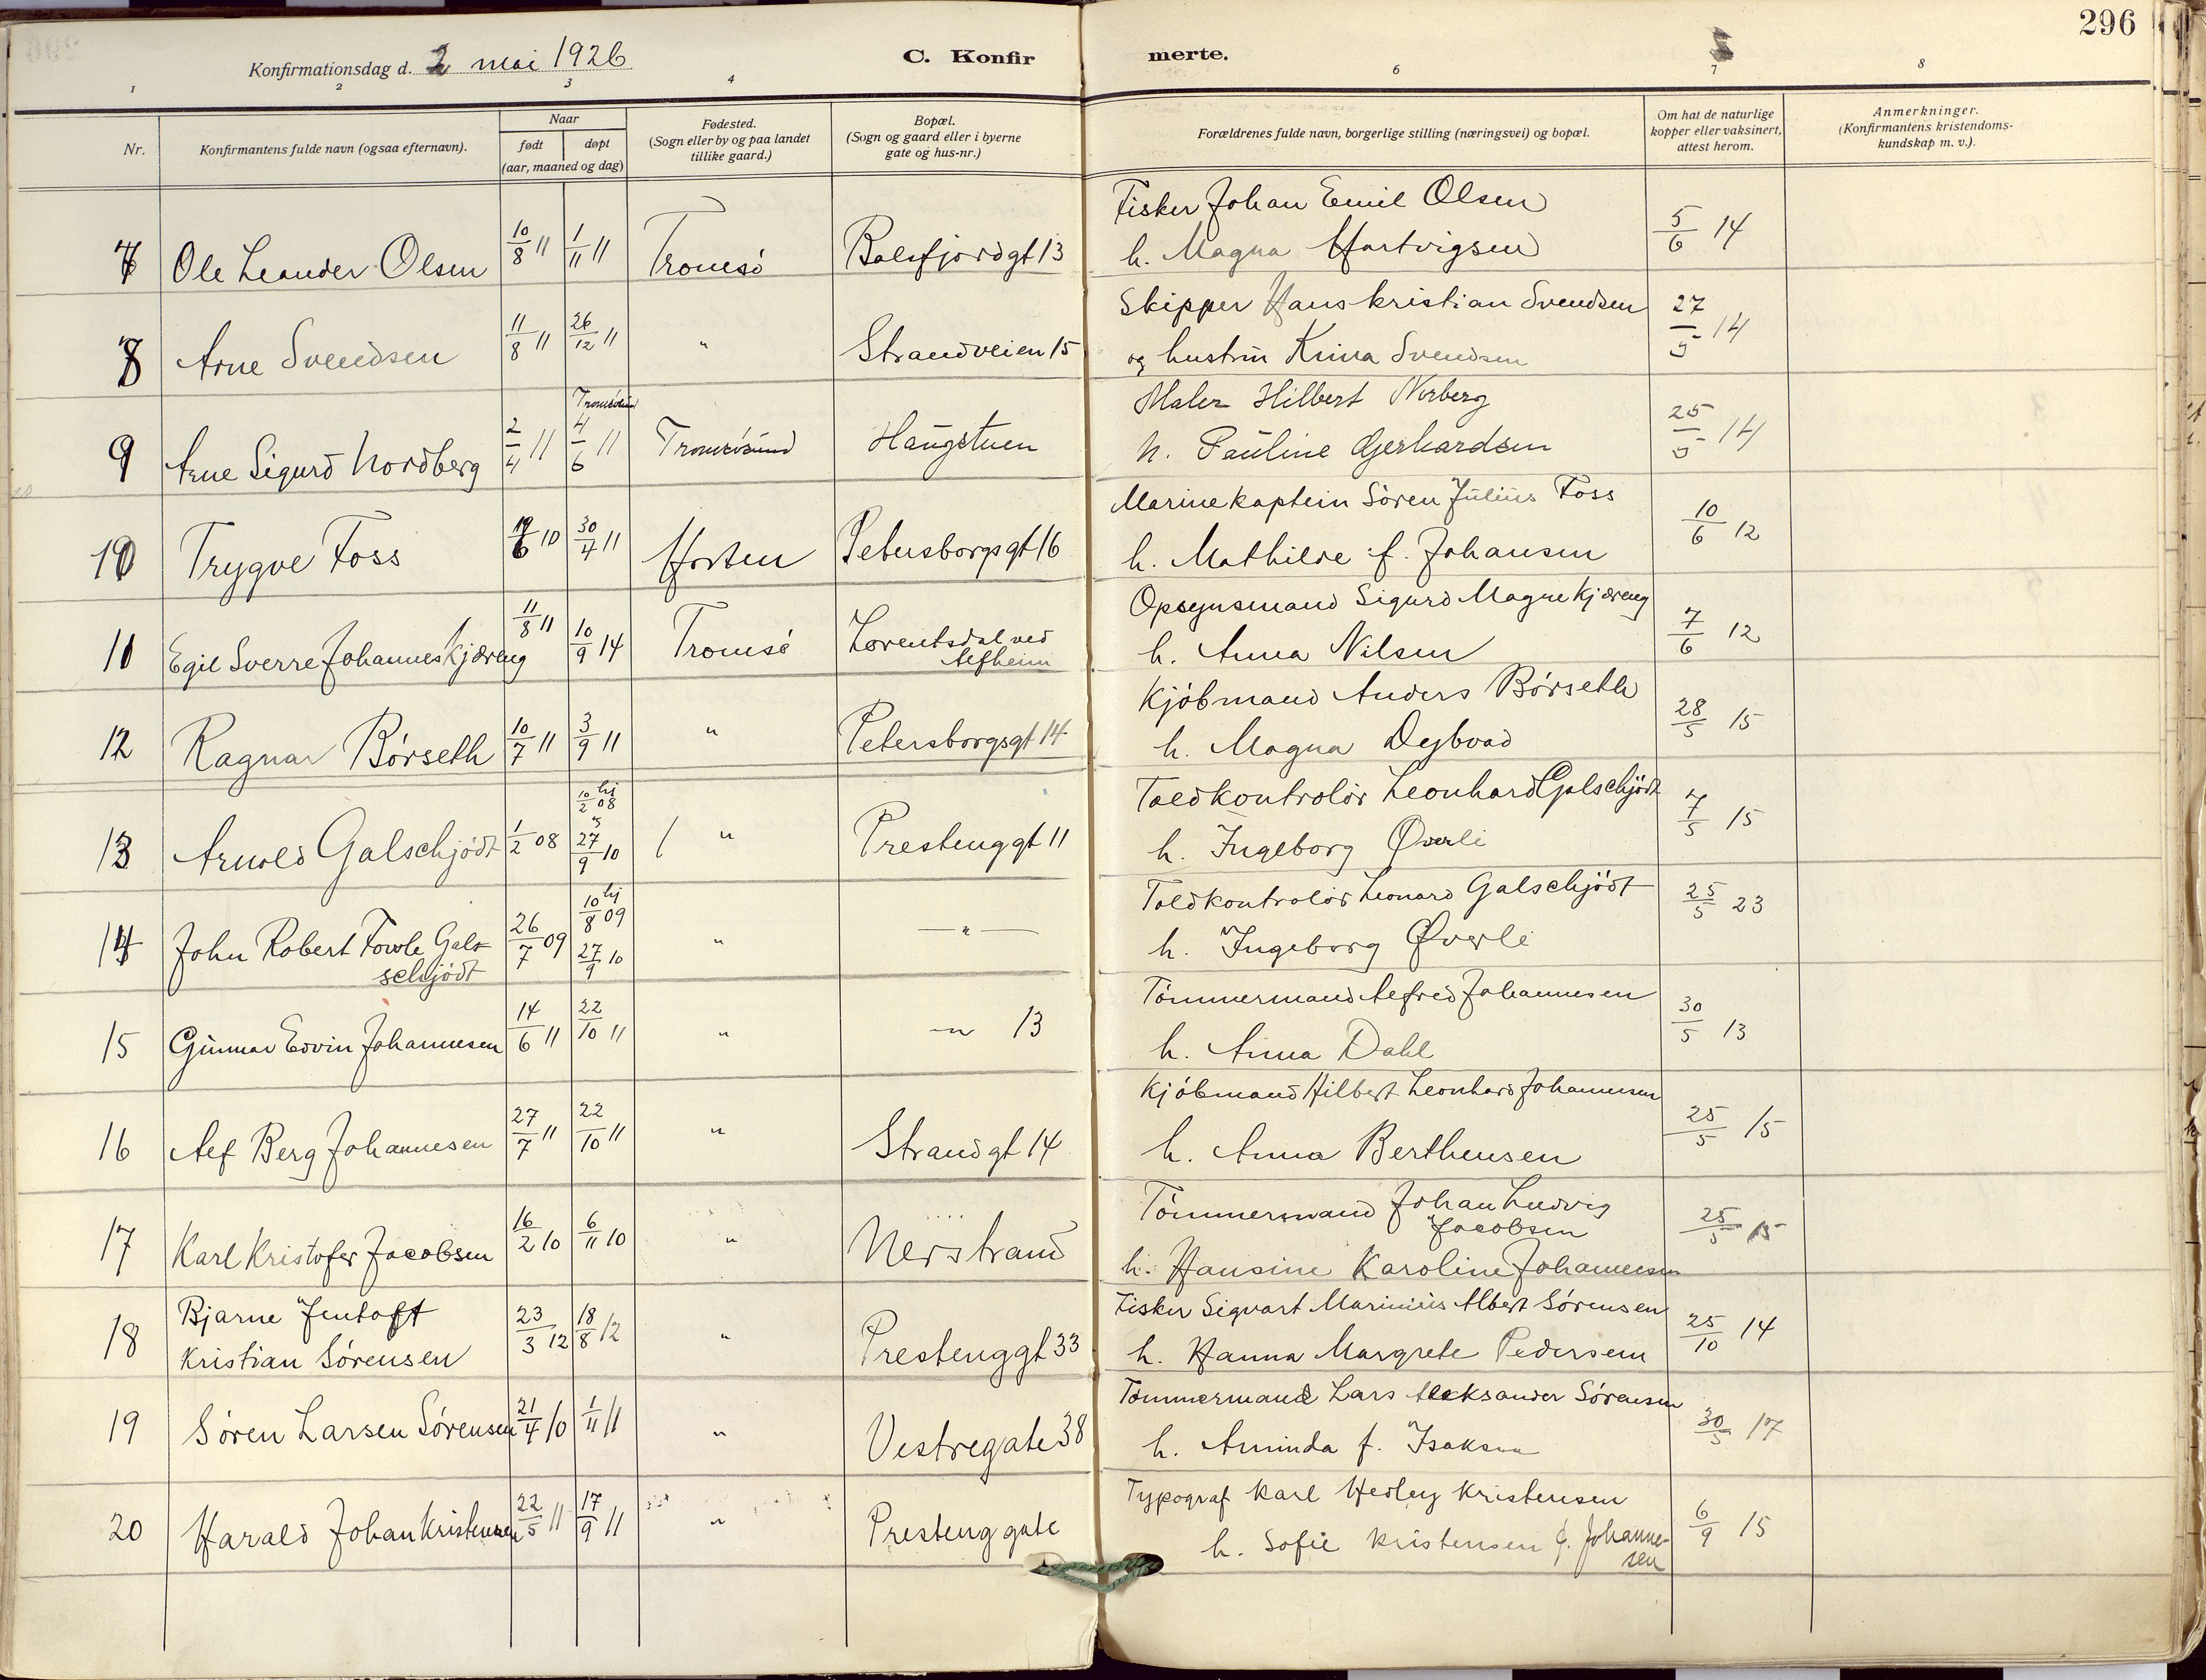 296
Konfirmationsdag d. 2 mai 1926
C. Konfirmerte.
1 2 3 4 6 7 8
Nr.
Konfirmantens fulde navn (ogsaa efternavn).
Naar
født døpt
(aar, maaned og dag)
Fødested.
(Sogn eller by og paa landet
tillike gaard.)
Bopæl.
(Sogn og gaard eller i byerne
gate og hus-nr.)
Forældrenes fulde navn, borgerlige stilling (næringsvei) og bopæl.
Om hat de naturlige
kopper eller vaksinert,
attest herom.
Anmerkninger.
(Konfirmantens kristendoms-
kundskap m. v.).
Fisker Johan Emil Olsen
7 Ole Leander Olsen 10/8 11 1/11 11 Tromsö Balsfjordgt 13 h. Magna Hartvigsen 5/6 14
Skipper Hans Kristian Svendsen
8 Arne Svendsen 11/8 11 26/12 11 " Strandveien 15 og hustru Svendsen 27/5 14
Tromsösund
Maler Hilbert Norberg
9 Arne Sigurd Nordberg 2/4 11 4/6 11 Tromsösund Haugstuen h. Pauline Gerhardsen 25/5 14
Marinekaptein Sören Julius Foss
10 Trygve Foss 19/6 10 30/4 11 Horten Petersborgsgt 16 h. Mathilde f. Johansen 10/6 12
Opsynsmand Sigurd Magne Kjæreng
11 Egil Sverre Johannes Kjæreng 11/8 11 10/9 14 Tromsö Lorentsdal ved
Alfheim
h. Anna Nilsen 7/6 12
Kjöbmand Anders Börseth
12 Ragnar Börseth 10/7 11 3/9 11 " Petersborgsgt 14 h. Magna Dybvad 28/5 15
Toldkontrolör Leonhard Galschjödt
13 Arnold Galschjödt 1/2 08 10/2 08 hj 27/9 10 " Prestenggt 11 h. Ingeborg Øverli 7/5 15
Toldkontrolör Leonard Galschjödt
14 John Robert Fowle Gal-
schjödt
26/7 09 10/8 09 hj 27/9 10 " — " — h. Ingeborg Øverli 25/5 23
Tömmermand Alfred Johannesen
15 Gunnar Edvin Johannesen 14/6 11 22/10 11 " — " 13 h. Anna Dahl 30/5 13
Kjöbmand Hilbert Leonhard Johannesen
16 Alf Berg Johannesen 27/7 11 22/10 11 " Strandgt 14 h. Anna Berthensen 25/5 15
Tömmermand Johan Ludvig
Jacobsen
17 Karl Kristofer Jacobsen 16/2 10 6/11 10 " Nerstrand h. Hansine Karoline Johannesen 25/5 15
Fisker Sigvart Marinius Albert Sörensen
18 Bjarne Jentoft
Kristian Sörensen
23/3 12 18/8 12 " Prestenggt 33 h. Hanna Margrete Pedersen 25/10 14
Tömmermand Lars Aleksander Sörensen
19 Sören Larsen Sörensen 21/4 10 1/11 11 " Vestregate 38 h. Aminda f. Isaksen 30/5 17
Typograf Karl Hedley Kristensen
20 Harald Johan Kristensen 22/5 11 17/9 11 " Presteng gate h. Sofie Kristensen f. Johanne-
sen
6/9 15